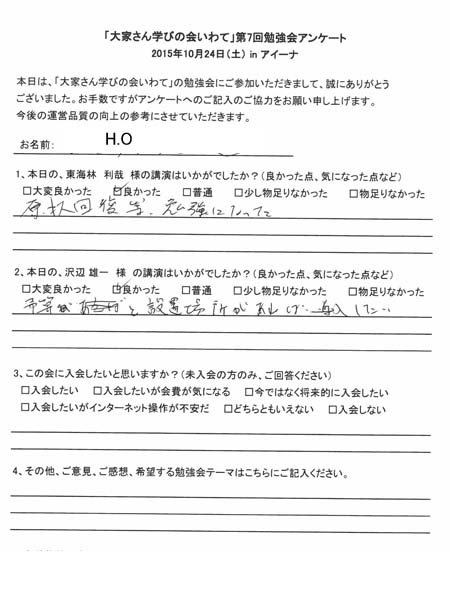 「大家さん学びの会いわて」第7回勉強会アンケート
2015年10月24日(土) in アイーナ
本日は、「大家さん学びの会いわて」の勉強会にご参加いただきまして、誠にありがとう
ございました。お手数ですがアンケートへのご記入のご協力をお願い申し上げます。
今後の運営品質の向上の参考にさせていただきます。
お名前: H.O
1、本日の、東海林 利哉 様の講演はいかがでしたか?(良かった点、気になった点など)
□大変良かった ☑良かった □普通 □少し物足りなかった □物足りなかった
原状回復等、勉強になった
2、本日の、沢辺 雄一 様 の講演はいかがでしたか?(良かった点、気になった点など)
□大変良かった ☑良かった □普通 □少し物足りなかった □物足りなかった
予算が と設置場所があれば 導入したい
3、この会に入会したいと思いますか?(未入会の方のみ、ご回答ください)
□入会したい □入会したいが会費が気になる □今ではなく将来的に入会したい
□入会したいがインターネット操作が不安だ □どちらともいえない □入会しない
4、その他、ご意見、ご感想、希望する勉強会テーマはこちらにご記入ください。